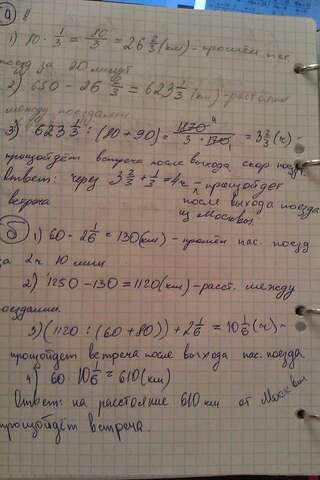 а) в
1) 80 · 1/3 = 80/3 = 26 2/3 (км) – прошёл пас.
поезд за 20 минут
2) 650 - 26 2/3 = 623 1/3 (км) - расстояние
между поездами.
3) 623 1/3 : (80 + 90) = 1870 / 3 · 170 = 3 2/3 (ч) -
произойдёт встреча после выхода скор. поезда.
Ответ: через 3 2/3 + 1/3 = 4ч произойдёт
встреча после выхода поезда
из Москвы.
б) 1) 60 · 2 1/6 = 130 (км) – прошёл пас. поезд
за 2ч 10 мин
2) 1250 - 130 = 1120 (км) - расст. между
поездами.
3) (1120 : (60 + 80)) + 2 1/6 = 10 1/6 (ч) -
произойдет встреча после выхода пас. поезда
4) 60 · 10 1/6 = 610 (км)
Ответ: на расстояние 610 км от Москвы
произойдёт встреча.